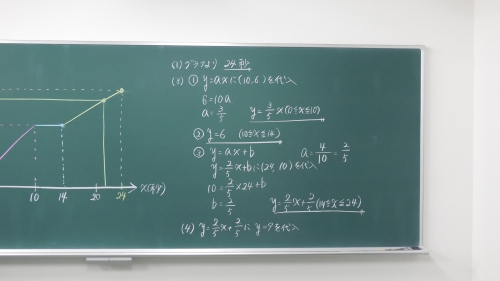 (1) グラフより 24秒
(3) ① y=axに(10,6)を代入
6=10a
a=3/5 y=3/5x (0≦x≦10)
② y=6 (10≦x≦14)
③ y=ax+b a=4/10=2/5
y=2/5x+bに(24,10)を代入
10=2/5×24+b
b=2/5 y=2/5x+2/5 (14≦x≦24)
(4) y=2/5x+2/5に y=9を代入
10 14 20 24 x(秒)